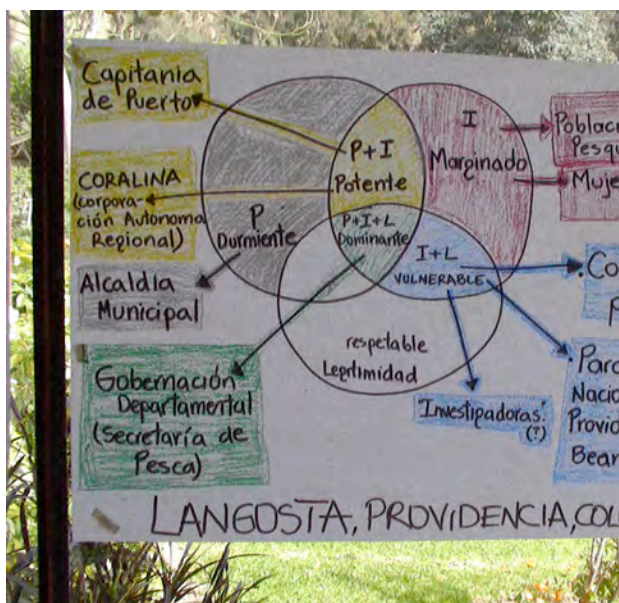 Capitania
de Puerto
CORALINA
(corpora-
ción Autonoma
Regional)
Alcaldía
Municipal
Gobernación
Departamental
(secretaría de
Pesca)
P+I
Potente
P
Durmiente
P+I+L
Dominante
I
Marginado
I+L
VULNERABLE
respetable
Legitimidad
Poblac
Pesqu
Muje
.Co
P
Parq
Nacio
Provid
Bean
"Investigadoras".
(?)
LANGOSTA, PROVIDENCIA, COL